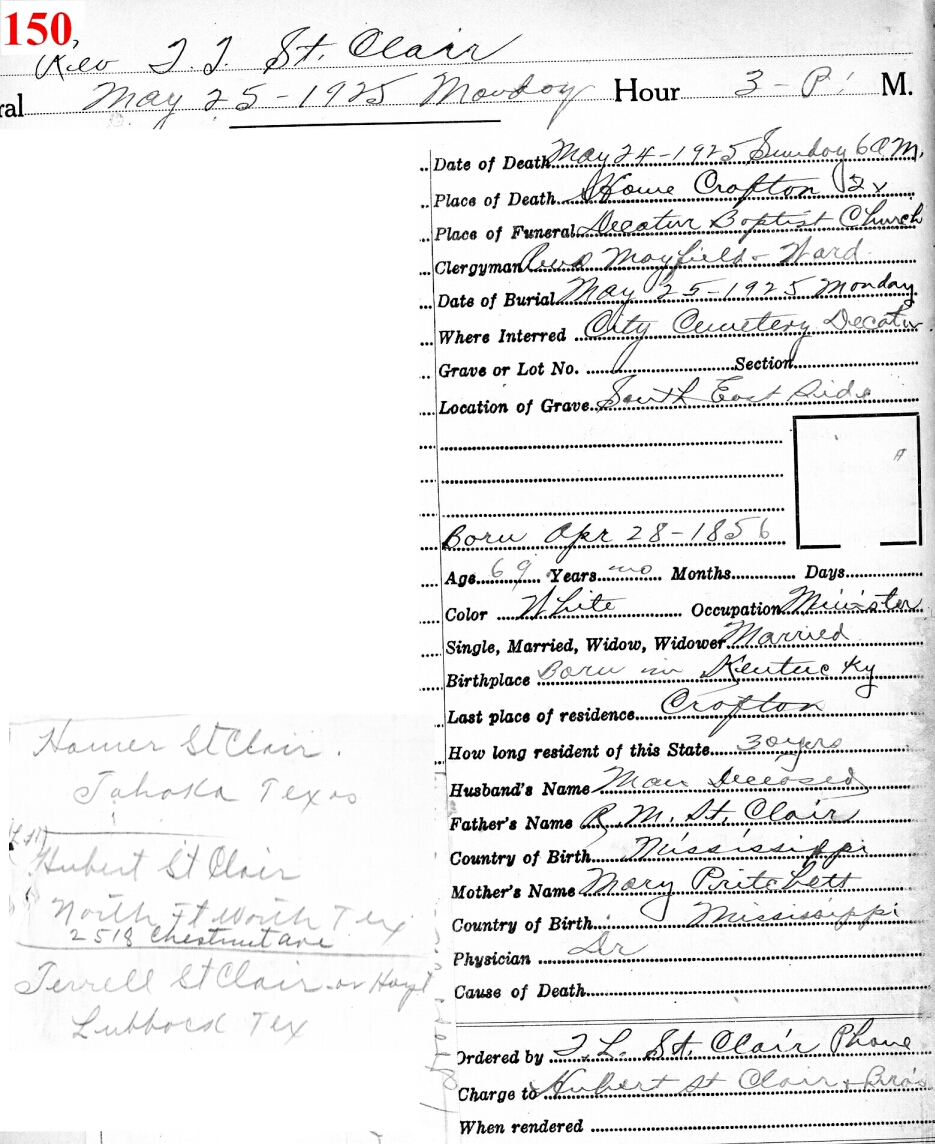 150
Rev T. J. St. Clair
ral May 25-1925 Monday Hour 3-P. M.
Date of Death May 24-1925 Sunday 6 A.M.
Place of Death Home Crofton
Place of Funeral Decatur Baptist Church
Clergyman Revs Mayfield - Ward
Date of Burial May 25-1925 Monday
Where Interred City Cemetery Decatur
Grave or Lot No. Section
Location of Grave South East Side
Born Apr 28-1856
Age 69 Years no Months Days
Color White Occupation Minister
Single, Married, Widow, Widower Married
Birthplace Born in Kentucky
Last place of residence Crofton
How long resident of this State 30 yrs
Husband's Name Man Deceased
Father's Name R. M. St. Clair
Country of Birth Mississippi
Mother's Name Mary Pritchett
Country of Birth Mississippi
Physician Dr
Cause of Death
Ordered by T. L. St. Clair Phone
Charge to Hubert St Clair & Bros
When rendered
Homer St Clair.
Tahoka Texas
Hubert St Clair
North Ft Worth Tex
2518 Chestnut ave
Terrell St Clair or Hoyt
Lubbock Tex